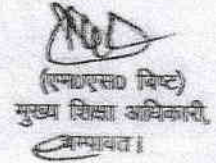 (एन०एस० बिष्ट)
मुख्य शिक्षा अधिकारी,
चम्पावत।